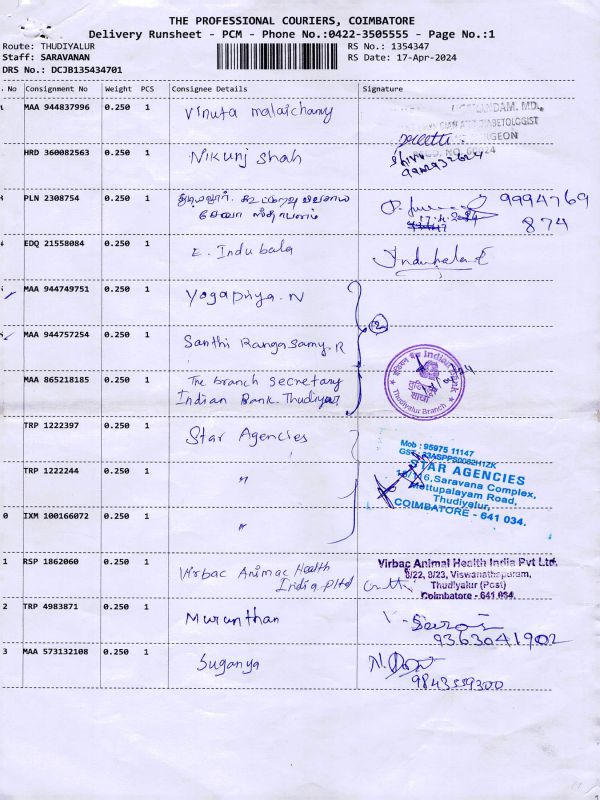 THE PROFESSIONAL COURIERS, COIMBATORE
Delivery Runsheet - PCM - Phone No.:0422-3505555 - Page No.:1
Route: THUDIYALUR
RS No.: 1354347
Staff: SARAVANAN
RS Date: 17-Apr-2024
DRS No.: DCJB135434701
No Consignment No Weight PCS Consignee Details Signature
MAA 944837996 0.250 1 Vinuta malaichamy
DIABETOLOGIST
SURGEON
HRD 360082563 0.250 1 Nikunj shah
PLN 2308754 0.250 1 துடியலூர். கூட்டுறவு விவசாய
சேவா ஸ்தாபனம்
17.4.2024
9994769
874
EDQ 21558084 0.250 1 E. Indubala Indubala E
MAA 944749751 0.250 1 Yogapriya. N
MAA 944757254 0.250 1 Santhi Rangasamy. R
2
MAA 865218185 0.250 1 The branch secretary
Indian Bank. Thudiyar
Indian Bank
Thudiyalur Branch
TRP 1222397 0.250 1 Star Agencies
TRP 1222244 0.250 1 "
Mob : 95975 11147
STAR AGENCIES
16/116, Saravana Complex,
Mettupalayam Road,
Thudiyalur,
COIMBATORE - 641 034.
0 IXM 100166072 0.250 1 "
1 RSP 1862060 0.250 1 Virbac Animac Health
India. P ltd
Virbac Animal Health India Pvt Ltd.
8/22, 8/23, Viswanathapuram,
Thudiyalur (Post)
Coimbatore - 641 034.
2 TRP 4983871 0.250 1 Murunthan
9363041902
3 MAA 573132108 0.250 1 Suganya
9843559300